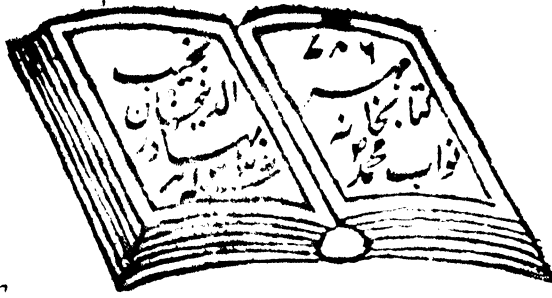 ۷۸۶
مہر
کتابخانہ
نواب محمد
نجیب
الدینخان
بہادر